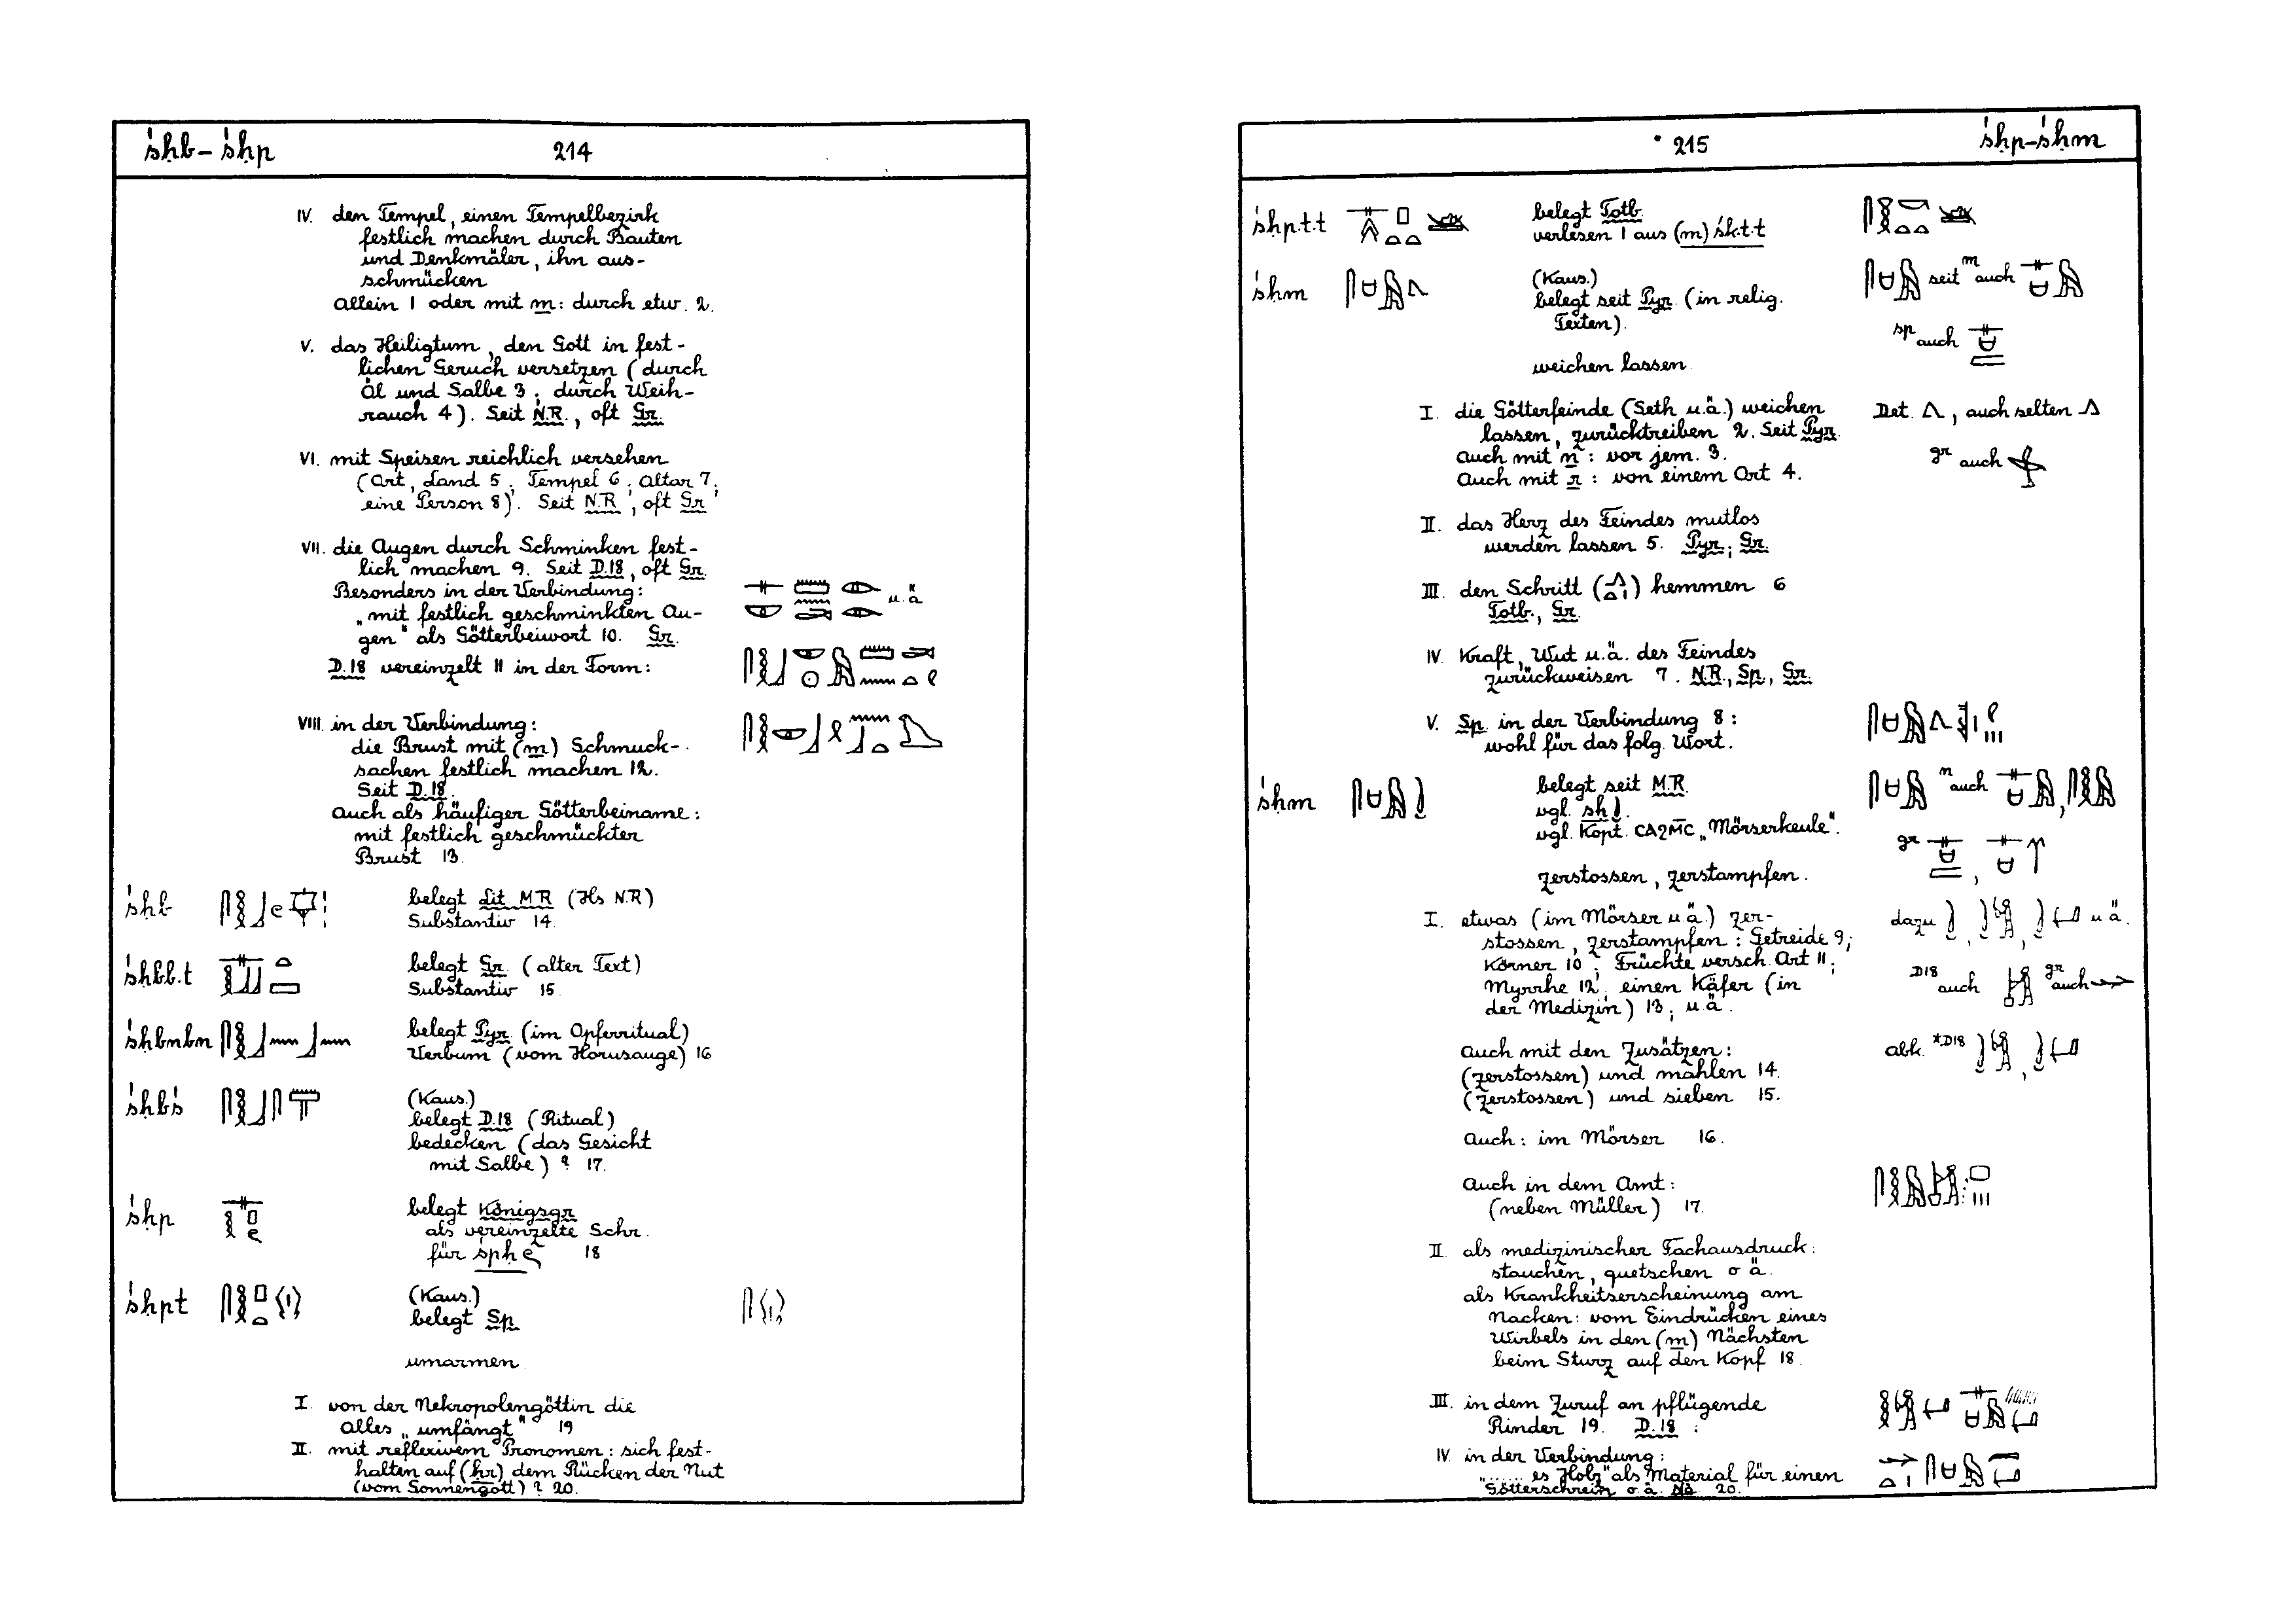 śḥb–śḥp
214
IV. den Tempel, einen Tempelbezirk
festlich machen durch Bauten
und Denkmäler, ihn aus-
schmücken
Allein 1 oder mit m: durch etw. 2.
V. das Heiligtum, den Gott in fest-
lichen Geruch versetzen (durch
Öl und Salbe 3; durch Weih-
rauch 4). Seit N.R., oft Gr.
VI. mit Speisen reichlich versehen
(Ort, Land 5; Tempel 6; Altar 7;
eine Person 8). Seit N.R., oft Gr.
VII. die Augen durch Schminken fest-
lich machen 9. Seit D.18, oft Gr.
Besonders in der Verbindung:
u.ä
„mit festlich geschminkten Au-
gen" als Götterbeiwort 10. Gr.
D.18 vereinzelt 11 in der Form:
VIII. in der Verbindung:
die Brust mit (m) Schmuck-
sachen festlich machen 12.
Seit D.18.
Auch als häufiger Götterbeiname:
mit festlich geschmückter
Brust 13.
śḥb belegt Lit. M.R. (Hs N.R)
Substantiv 14.
śḥbb.t belegt Gr. (alter Text)
Substantiv 15.
śḥbnbn belegt Pyr. (im Opferritual)
Verbum (vom Horusauge) 16
śḥbś (Kaus.)
belegt D.18 (Ritual)
bedecken (das Gesicht
mit Salbe) ? 17.
śḥp belegt Königsgr
als vereinzelte Schr.
für spḥ 18
śḥpt (Kaus.)
belegt Sp.
umarmen
I. von der Nekropolengöttin die
Alles „umfängt" 19
II. mit reflexivem Pronomen: sich fest-
halten auf (ḥr) dem Rücken der Nut
(vom Sonnengott) ? 20.
215
śḥp–śḥm
śḥp.t.t belegt Totb.
verlesen 1 aus (m)śk.t.t
śḥm (Kaus.)
seit m auch
belegt seit Pyr. (in relig.
Texten).
sp auch
weichen lassen.
I. die Götterfeinde (Seth u.ä.) weichen
Det. , auch selten
lassen, zurücktreiben 2. Seit Pyr.
Auch mit n: vor jem. 3.
gr auch
Auch mit r: von einem Ort 4.
II. das Herz des Feindes mutlos
werden lassen 5. Pyr; Gr.
III. den Schritt ( ) hemmen 6
Totb., Gr.
IV. Kraft, Wut u.ä. des Feindes
zurückweisen 7. N.R., Sp., Gr.
V. Sp. in der Verbindung 8:
wohl für das folg. Wort.
śḥm belegt seit M.R.
n auch
vgl. sḥ .
vgl. Kopt. CAϨM̅C „Mörserkeule".
gr
zerstossen, zerstampfen.
I. etwas (im Mörser u.ä.) zer-
dazu , , u.ä.
stossen, zerstampfen: Getreide 9;
Körner 10; Früchte versch. Art 11;
Myrrhe 12; einen Käfer (in
D18 auch gr auch
der Medizin) 13; u.ä.
Auch mit den Zusätzen:
abk. *D18
(zerstossen) und mahlen 14.
(zerstossen) und sieben 15.
Auch: im Mörser 16.
Auch in dem Amt:
(neben Müller) 17.
II. als medizinischer Fachausdruck:
stauchen, quetschen o.ä.
als Krankheitserscheinung am
Nacken: vom Eindrücken eines
Wirbels in den (m) Nächsten
beim Sturz auf den Kopf 18.
III. in dem Zuruf an pflügende
Rinder 19. D.18 :
IV. in der Verbindung:
„...... es Holz" als Material für einen
Götterschrein o.ä. Nä. 20.